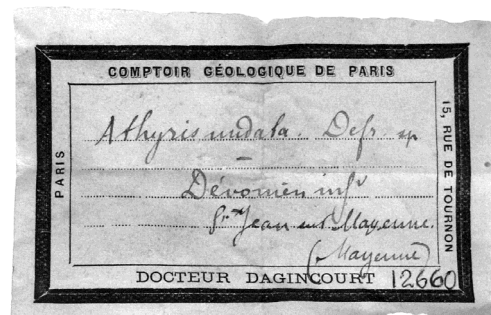 COMPTOIR GÉOLOGIQUE DE PARIS
PARIS
15, RUE DE TOURNON
Athyris undata. Defr sp
Dévonien infr
St Jean sur Mayenne.
(Mayenne)
DOCTEUR DAGINCOURT 12660